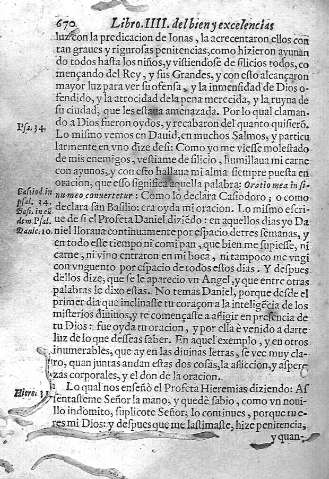 670 Libro.IIII. del bien y excelencias
luz con la predicacion de Jonas, la acrecentaron ellos con
tan graues y rigurosas penitencias, como hizieron ayunan
do todos hasta los niños, y vistiendose de silicios todos, co
mençando del Rey, y sus Grandes, y con esto alcançaron
mayor luz para ver su ofensa, y la inmensidad de Dios o-
fendido, y la atrocidad de la pena merecida, y la ruyna de
su ciudad, que les estaua amenazada. Por lo qual claman-
do a Dios fueron oydos, y recabaron del quanto quisierõ.
Psa. 34. Lo mismo vemos en Dauid, en muchos Salmos, y particu
larmente en vno dize desi: Como yo me viesse molestado
de mis enemigos, vestiame de silicio, humillaua mi carne
con ayunos, y con esto hallaua mi alma siempre puesta en
oracion, que esso significa aquella palabra: Oratio mea in si-
nu meo conuertetur: Como lo declara Casiodoro; o como
Psal. 34. declara san Basilio: era oyda mi oracion. Lo mismo escri-
ue de si el Profeta Daniel diziẽdo: en aquellos dias yo Da
Danie. 10. niel lloraua continuamente por espacio de tres semanas, y
en todo esse tiempo ni comi pan, que bien me supiesse, ni
carne, ni vino entraron en mi boca, ni tampoco me vngi
con vnguento por espacio de todos estos dias. Y despues
dellos dize, que se le aparecio vn Angel, y que entre otras
palabras le dixo estas. No temas Daniel, porque desde el
primer dia que inclinaste tu coraçon a la inteligẽcia de los
misterios diuinos, y te començaste a afligir en presencia de
tu Dios: fue oyda tu oracion, y por ella è venido a darte
luz de lo que desseas saber. En aquel exemplo, y en otros
inumerables, que ay en las diuinas letras, se vee muy cla-
ro, quan juntas andan estas dos cosas, la afliccion, y asper-
zas corporales, y el don de la oracion.
Lo qual nos enseñò el Profeta Hieremias diziendo: As
sentasteme Señor la mano, y quedè sabio, como vn noui-
llo indomito, suplicote Señor, lo continues, porque tu e-
res mi Dios: y despues que me lastimaste, hize penitencia,
y quan-